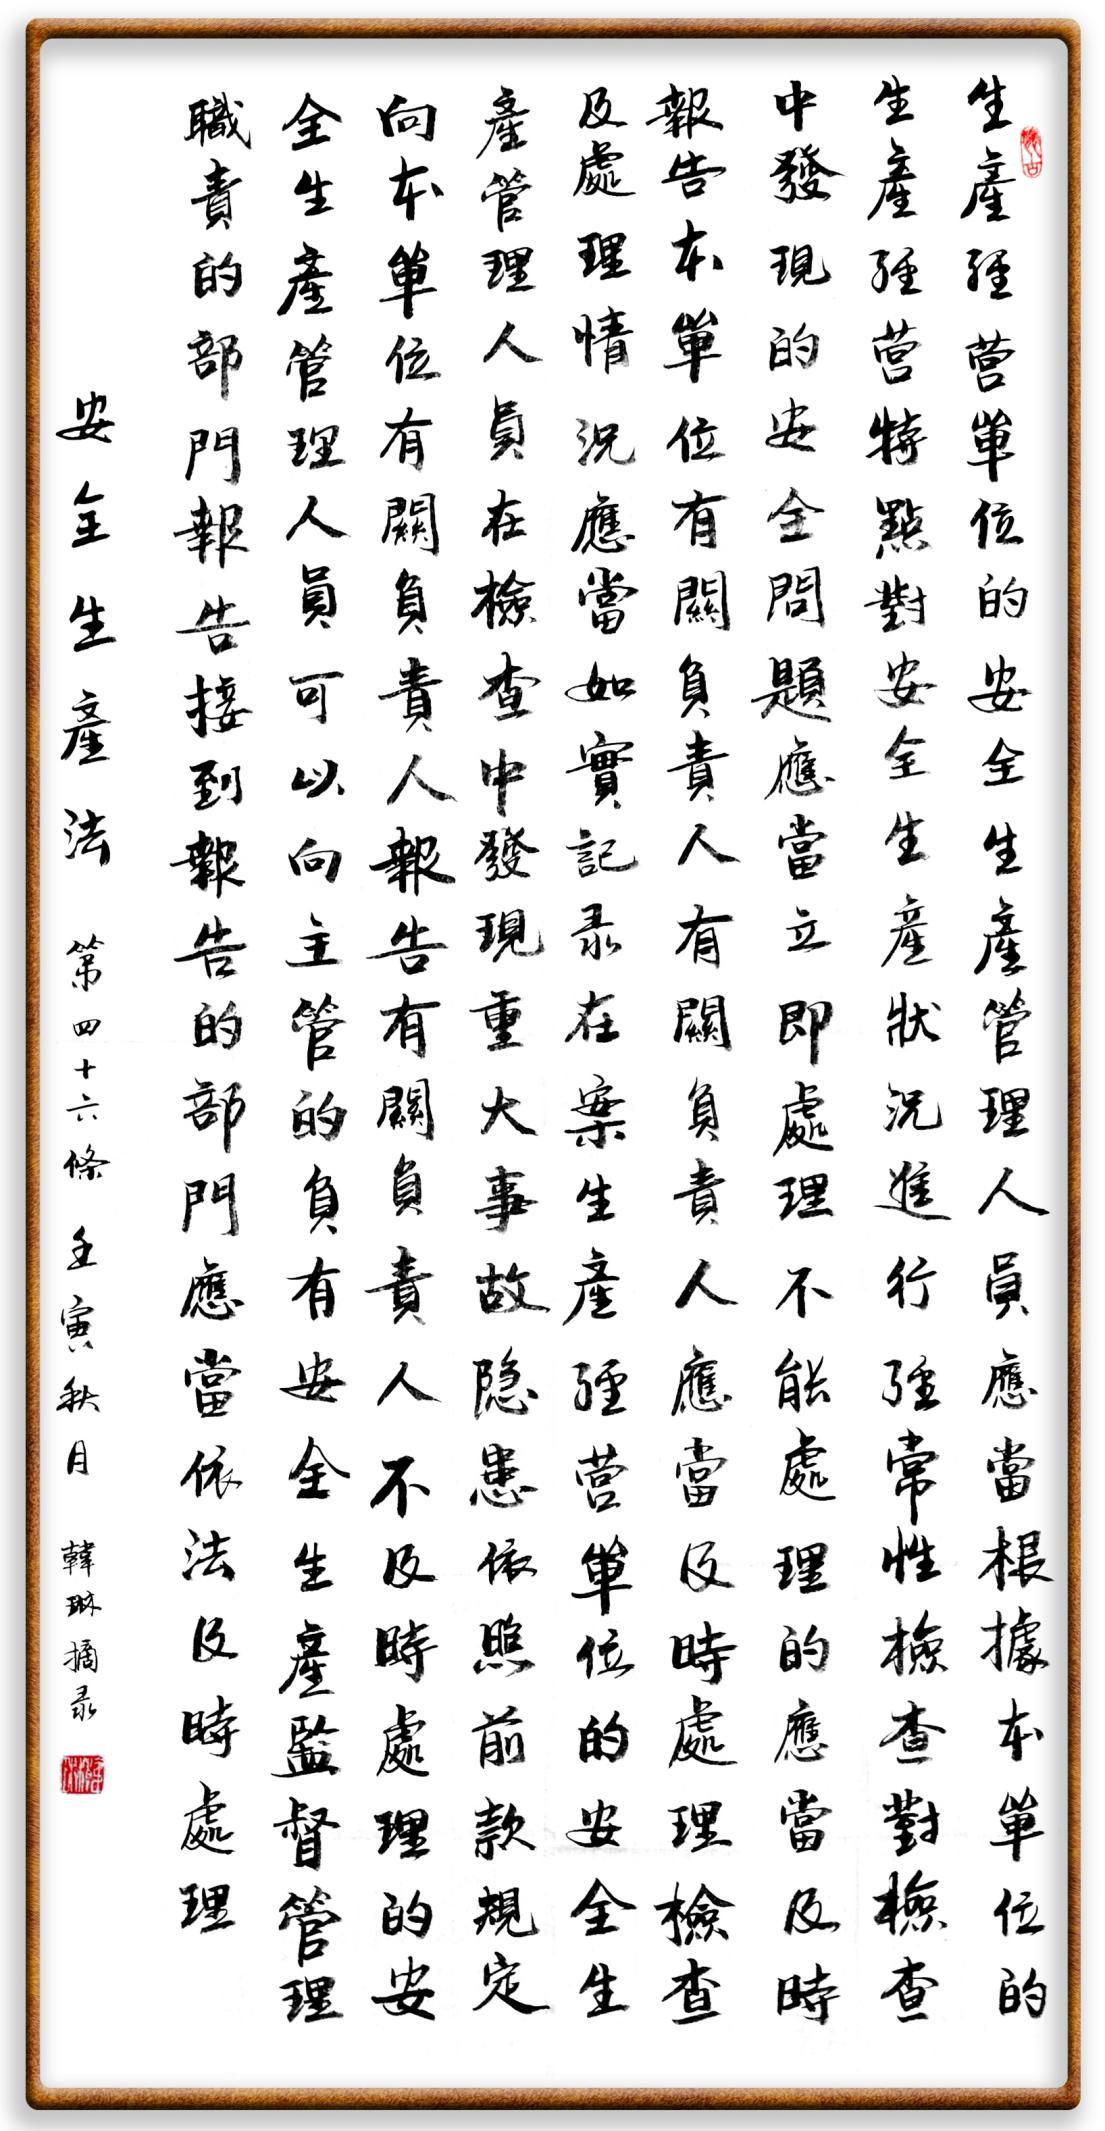 生產經營單位的安全生產管理人員應當根據本單位的
生產經營特點對安全生產狀況進行經常性檢查對檢查
中發現的安全問題應當立即處理不能處理的應當及時
報告本單位有關負責人有關負責人應當及時處理檢查
及處理情況應當如實記录在案生產經營單位的安全生
產管理人員在檢查中發現重大事故隐患依照前款規定
向本單位有關負責人報告有關負責人不及時處理的安
全生產管理人員可以向主管的負有安全生產監督管理
職責的部門報告接到報告的部門應當依法及時處理
安全生產法 第四十六條 壬寅秋月 韓琳摘录